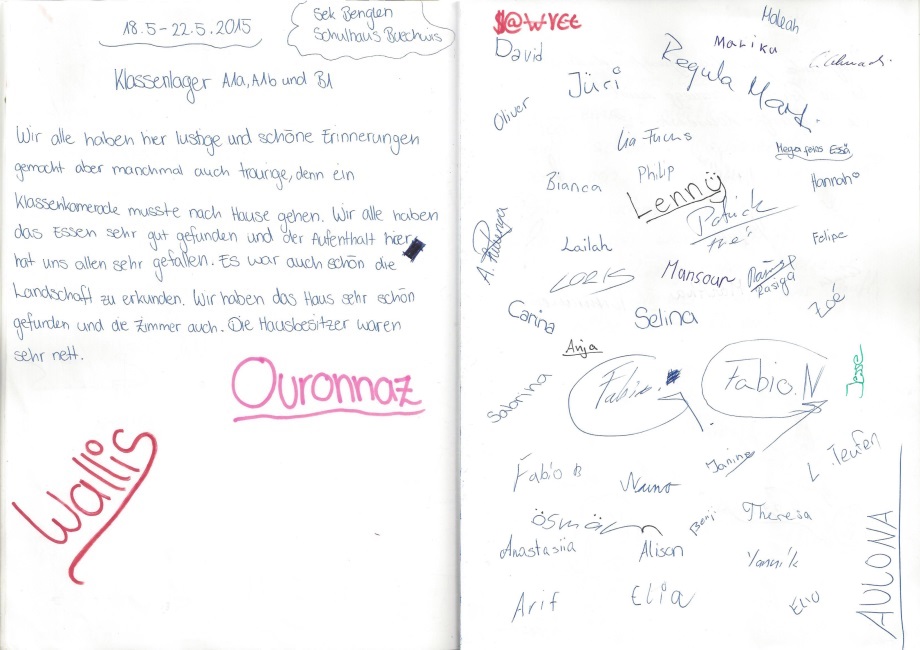 18.5-22.5.2015
Sek Benglen
Schulhaus Buechwis
Klassenlager A1a, A1b und B1
Wir alle haben hier lustige und schöne Erinnerungen
gemacht aber manchmal auch traurige, denn ein
Klassenkamerade musste nach Hause gehen. Wir alle haben
das Essen sehr gut gefunden und der Aufenthalt hier
hat uns allen sehr gefallen. Es war auch schön die
Landschaft zu erkunden. Wir haben das Haus sehr schön
gefunden und die Zimmer auch. Die Hausbesitzer waren
sehr nett.
Ouronnaz
Wallis
David
Maleah
Marika
Oliver
Jüri
Regula
Lia Fuchs
Hannah
Bianca
Philip
Lenny
Patrick
Lailah
Felipe
LORIS
Mansour
Rasiga
Zoé
Carina
Selina
Anja
Sabrina
Fabio.N
Jesse
Fabio B
Nuno
Janine
L. Teufen
ösmän
Benji
Theresa
Anastasiia
Alison
Yannik
Arif
Elia
Elio
AULONA